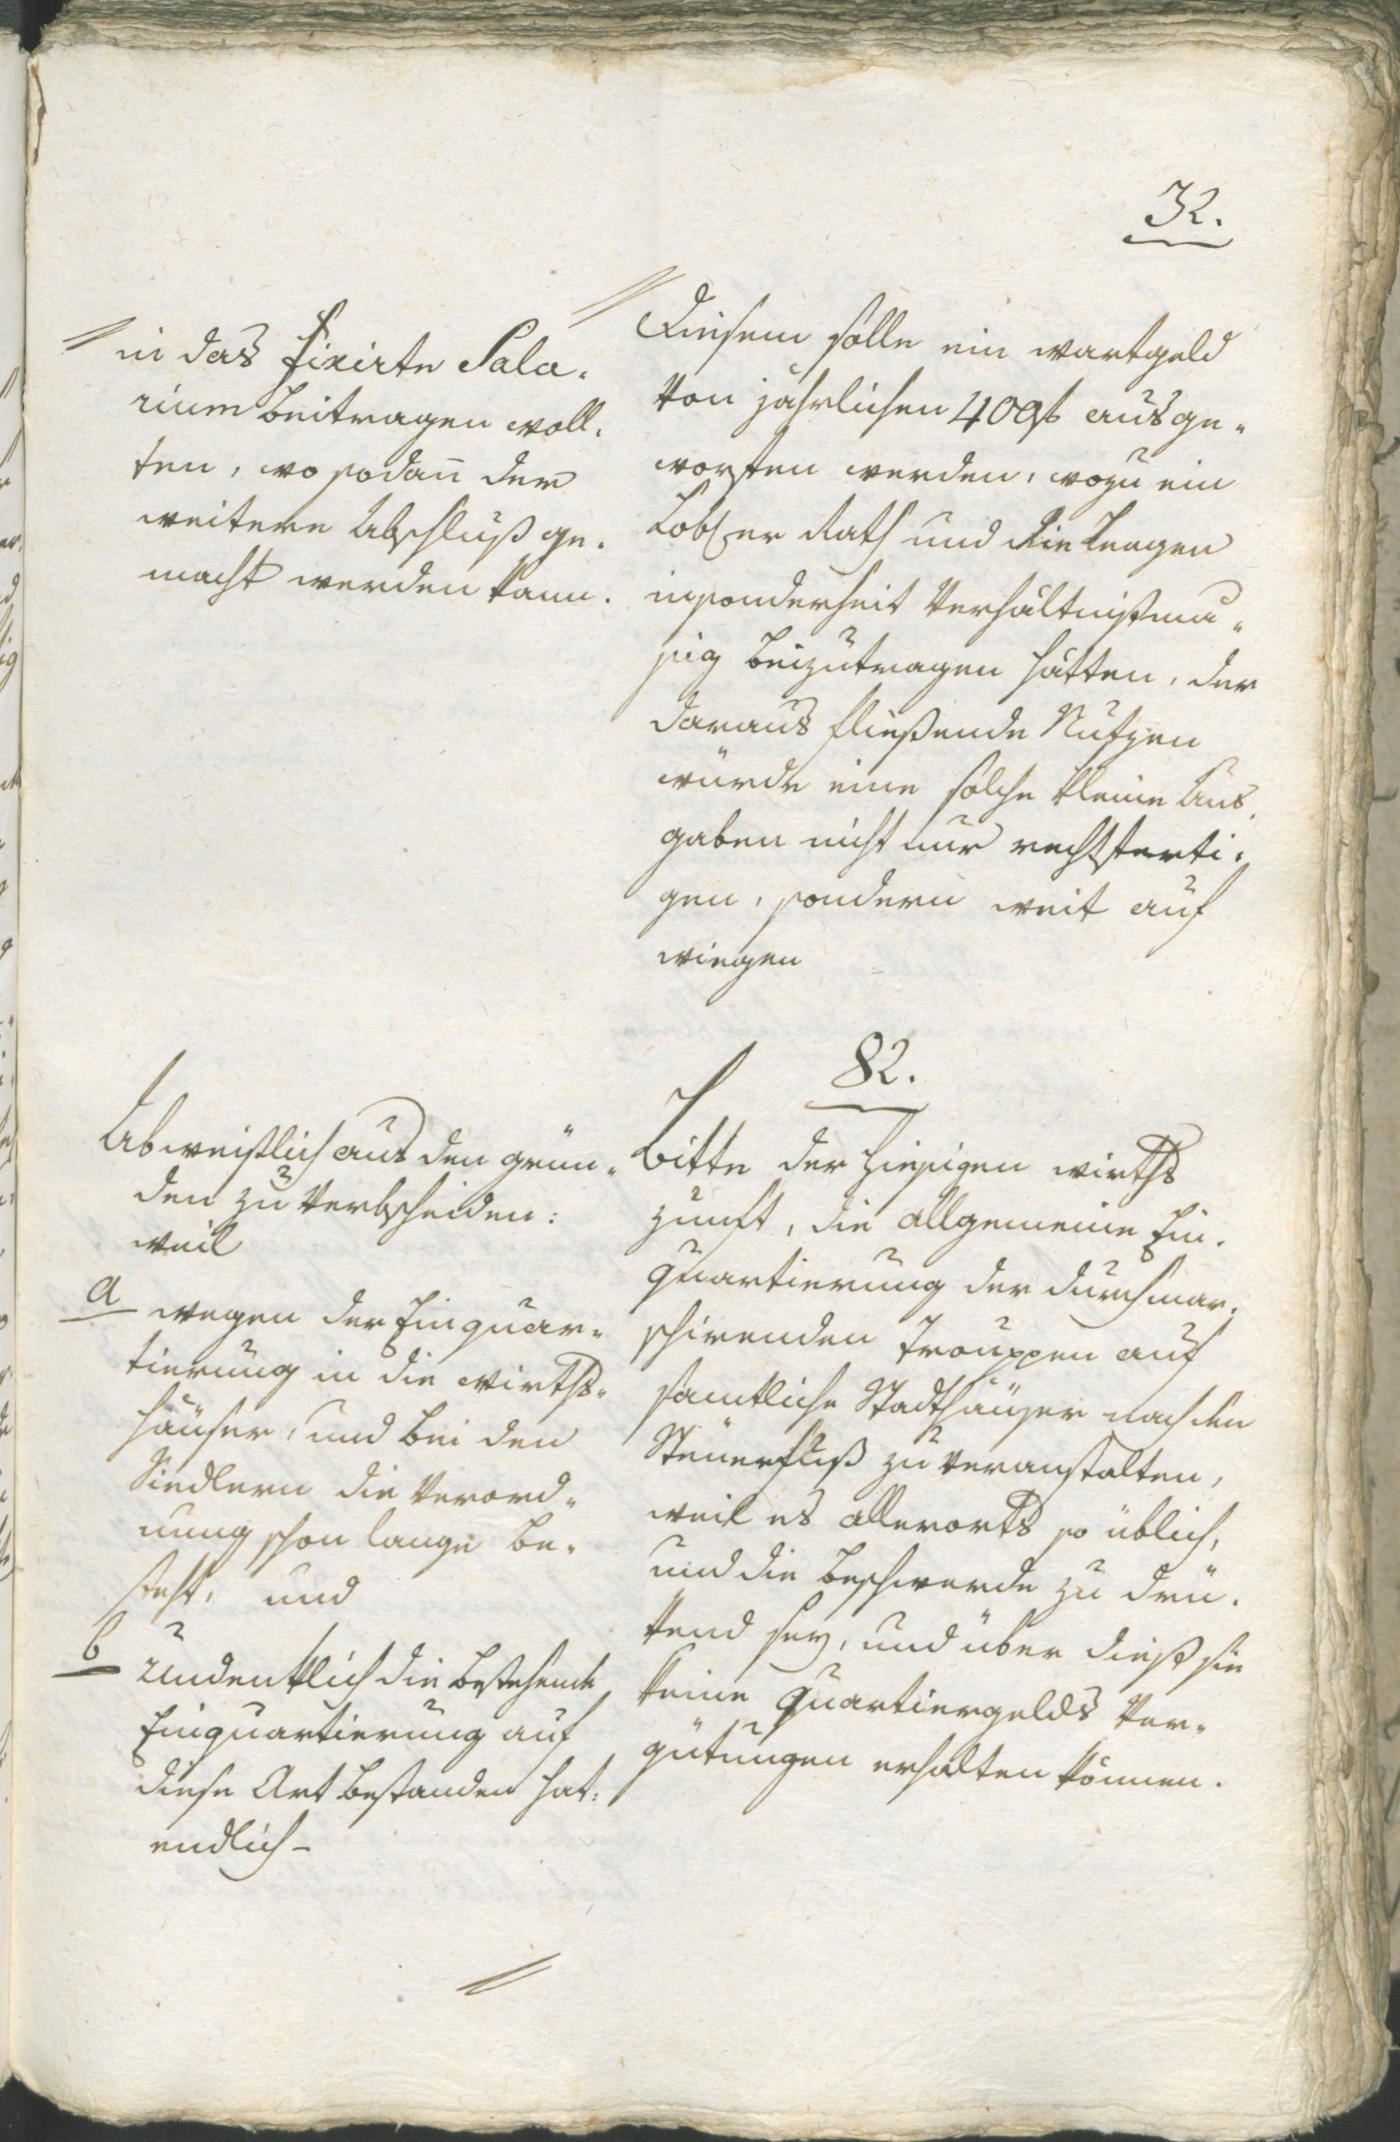 32.
in das fixirte Sala-
rium beitragen woll-
ten, wo sodañ der
weitere Abschluß ge-
macht werden kann.
Diesem solle ein wartgeld
von jährlichen 400f ausge-
worfen werden, wozu ein
Lobl er Rath und die
insonderheit Verhältnißmä-
sig beizutragen hätten, der
daraus fließende Nutzen
würde eine solche kleine Aus-
gaben nicht nur rechtferti-
gen, sondern weit auf
wiegen
82.
Abweißlich aus den grün-
den zu verbscheiden:
weil
a wegen der Einquar-
tierung in die wirths-
häuser, und bei den
Siedlern die Verord-
nung schon lange be-
steht, und
b undenklich die bestehende
Einquartierung auf
diese Art bestanden hat.
endlich-
Bitte der hiesigen wirths
zunft, die allgemeine Ein-
quartierung der durchmar-
schirenden Trouppen auf
samtliche Stadthäuser nach den
Steuerfuß zu veranstalten,
weil es allerorts so üblich,
und die beschwerde zu drü-
kend sey, und über dieß sie
keine Quartiergelds Ver-
gütungen erhalten können.